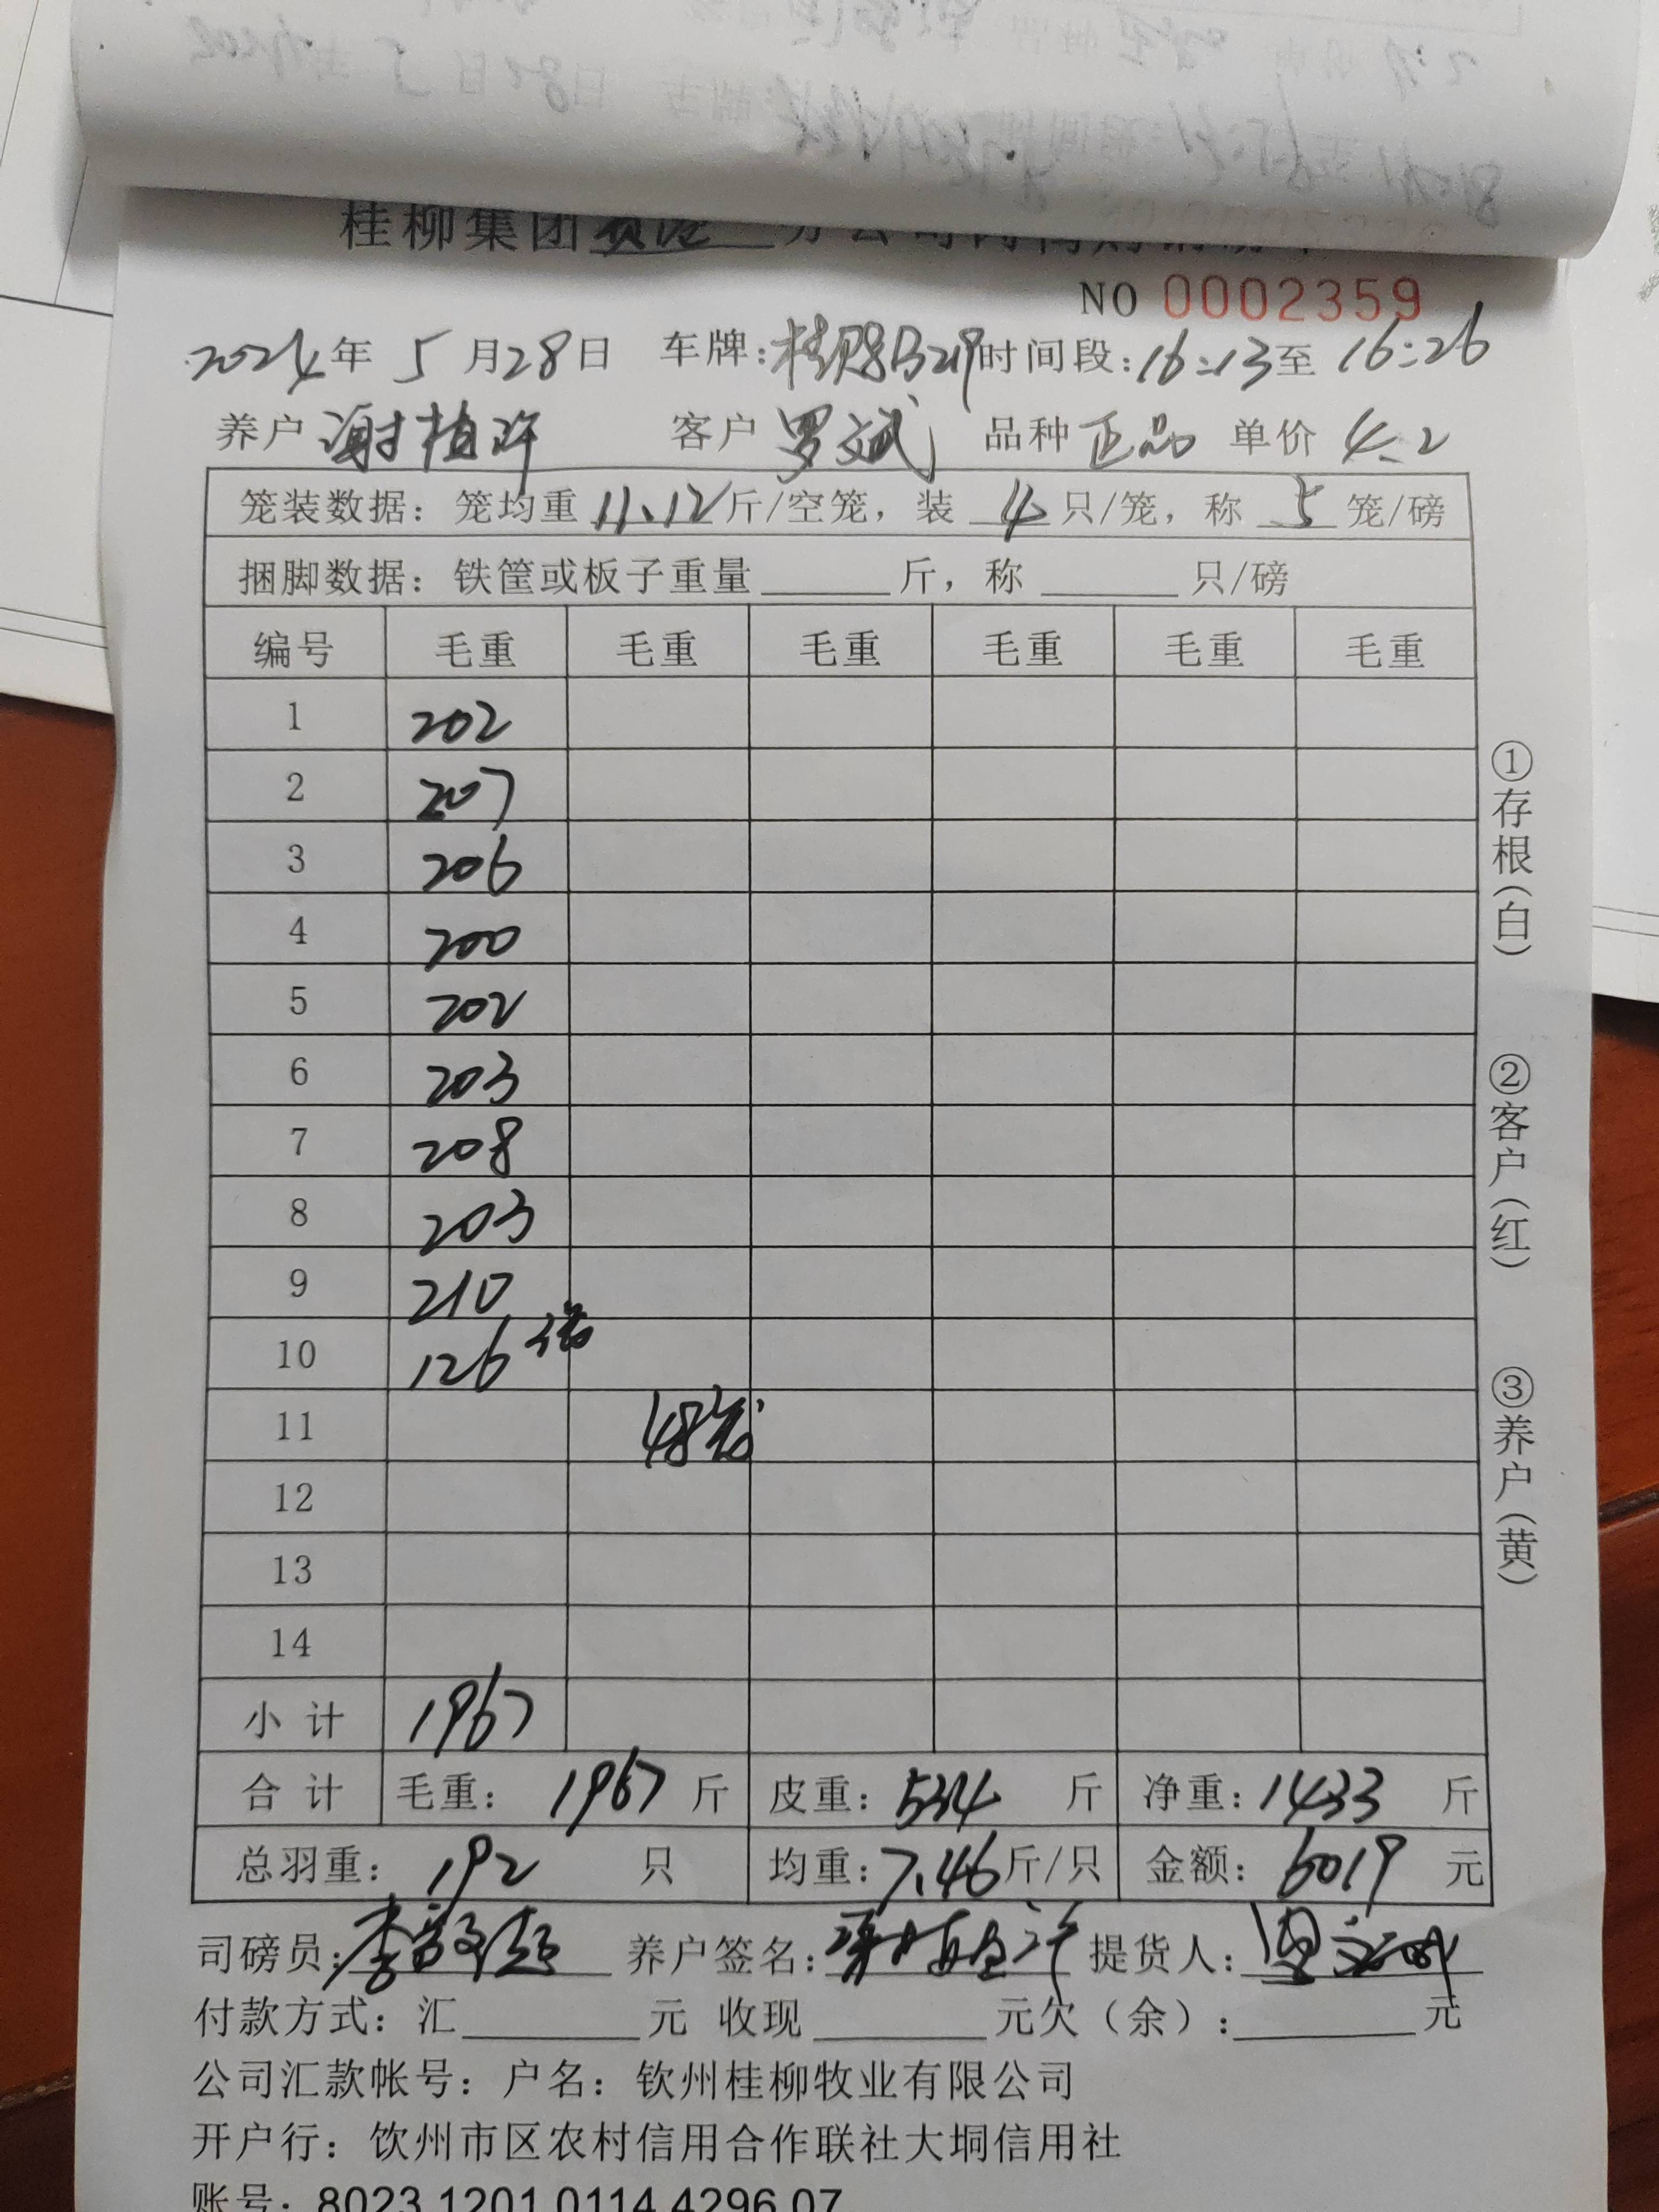 桂柳集团
NO 0002359
2024年 5 月28日 车牌: 时间段:16:13至 16:26
养户 谢植许 客户 罗文斌 品种 正品 单价 4.2
笼装数据：笼均重 11.12 斤/空笼，装 4 只/笼，称 5 笼/磅
捆脚数据：铁筐或板子重量______斤，称______只/磅
编号 毛重 毛重 毛重 毛重 毛重 毛重
1 202
2 207
3 206
4 200
5 202
6 203
7 208
8 203
9 210
10 126 3笼
11 48笼
12
13
14
小 计 1967
合 计 毛重： 1967 斤 皮重：534 斤 净重：1433 斤
总羽重： 192 只 均重：7.46斤/只 金额： 6019 元
司磅员: 养户签名:谢植许 提货人:
付款方式：汇______元 收现______元欠（余）:______元
公司汇款帐号：户名：钦州桂柳牧业有限公司
开户行：饮州市区农村信用合作联社大垌信用社
账号：8023 1201 0114 4296 07
①存根（白）
②客户（红）
③养户（黄）